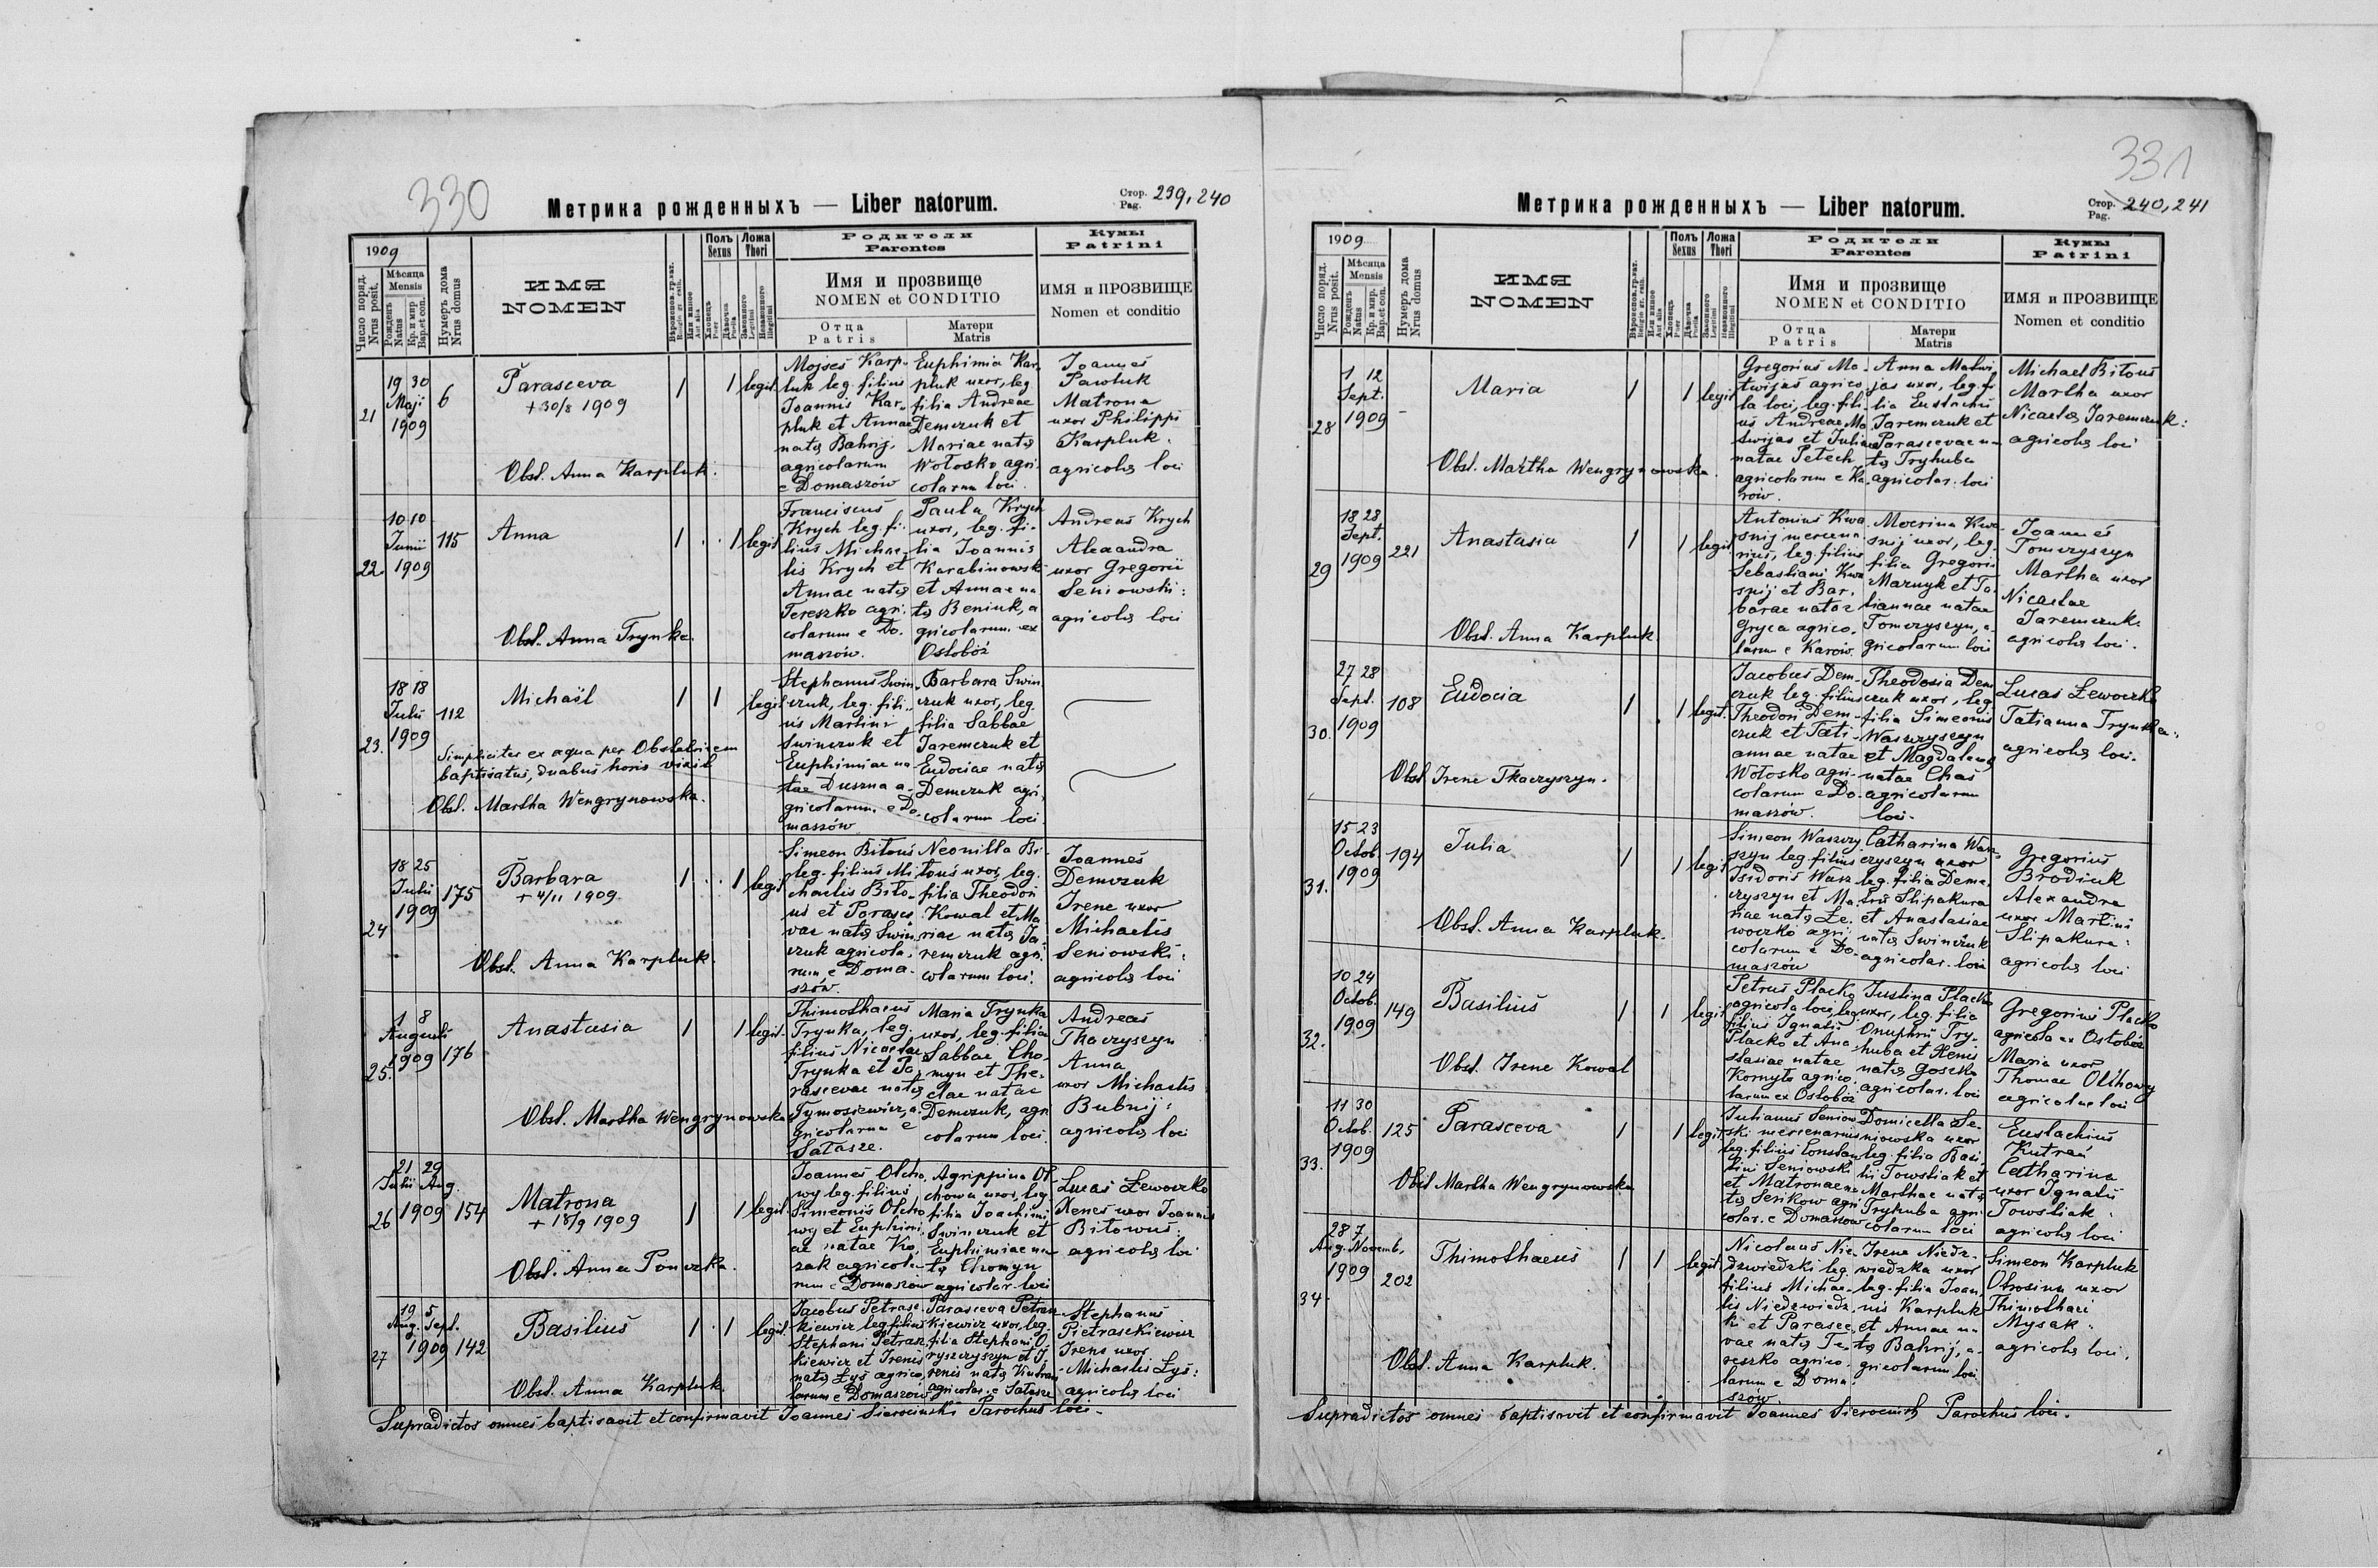 330
Метрика рожденныхъ — Liber natorum.
Стор. 239, 240
Pag.
1909
Число поряд.
Nrus posit.
Мѣсяца
Mensis
Рожденъ
Natus
Кр. и мир.
Bap. et con.
Нумеръ дома
Nrus domus
ИМЯ
NOMEN
Полъ
Sexus
Хлопецъ
Puer
Дѣвочка
Puella
Ложа
Thori
Законного
Legitimi
Незаконного
Illegitimi
Родители
Parentes
Имя и прозвище
NOMEN et CONDITIO
Отца
Patris
Матери
Matris
Кумы
Patrini
ИМЯ и ПРОЗВИЩЕ
Nomen et conditio
21
19 30
Maji
1909
6
Parasceva
+ 30/8 1909
Obst. Anna Karpluk.
1 1 legit.
Mojses Karp-
luk leg. filius
Joannis Kar-
pluk et Annae
natae Bahrij.
agricolarum
e Domaszów
Euphimia Kar-
pluk uxor, leg.
filia Andreae
Demczuk et
Mariae natae
Wołosko agri-
colarum loci.
Joannes
Pawluk
Matrona
uxor Philippi
Karpluk.
agricolae loci
22
10 10
Junii
1909
115
Anna
Obst. Anna Trynka.
1 1 legit
Franciscus
Krych leg. fi-
lius Michae-
lis Krych et
Annae natae
Tereszko agri-
colarum e Do-
maszów.
Paula Krych
uxor, leg. fi-
lia Joannis
Karabinowski
et Annae na-
tae Beniuk, a-
gricolarum ex
Ostobóż
Andreas Krych
Alexandra
uxor Gregorii
Seniowski:
agricolae loci
23.
18 18
Julii
1909
112
Michaël
Simpliciter ex aqua per Obstetricem
baptisatus, duabus horis vixit
Obst. Martha Wengrynowska.
1 1 legit.
Stephanus Swin-
czuk, leg. fili-
us Martini
Swinczuk et
Euphimiae na-
tae Duszna a-
gricolarum e Do-
maszów
Barbara Swin
czuk uxor, leg.
filia Sabbae
Jaremczuk et
Eudociae natae
Demczuk agri-
colarum loci.
24
18 25
Julii
1909
175
Barbara
+ 4/11 1909
Obst. Anna Karpluk.
1 1 legit
Simeon Bitous
leg. filius Mi-
chaelis Bito-
us et Parasce-
vae natae Swin-
czuk agricola-
rum e Doma-
szów.
Neonilla Bi-
tous uxor, leg.
filia Theodori
Kowal et Ma-
riae natae Ja-
remczuk agri-
colarum loci.
Joannes
Demczuk
Irene uxor
Michaelis
Seniowski:
agricolae loci
25.
1 8
Augusti
1909
176
Anastasia
Obst. Martha Wengrynowska
1 1 legit.
Thimothaeus
Trynka, leg.
filius Nicolae
Trynka et Pa-
rascevae natae
Tymosiewicz, a-
gricolarum e
Sałasze.
Maria Trynka
uxor, leg. filia
Sabbae Cho-
myn et The-
clae natae
Demczuk, agri
colarum loci.
Andreas
Tkaczyszyn
Anna
uxor Michaelis
Bubnij:
agricolae loci
26
21 29
Julii Aug.
1909
154
Matrona
+ 18/9 1909
Obst. Anna Ponczka.
1 1 legit.
Joannes Olcho-
wy leg. filius
Simeonis Olcho
wy et Euphimi-
ae natae Ko-
zak agricola-
rum e Domaszów
Agrippina Ol-
chowa uxor, leg.
filia Joachimi
Swinczuk et
Euphimiae na-
tae Chomyn
agricolar. loci
Lucas Lewoczko
Xenes uxor Joannis
Bitowus:
agricolae loci
27
19 5
Aug. Sept.
1909
142
Basilius
Obst. Anna Karpluk.
1 1 legit.
Jacobus Petrasz-
kiewicz leg. filius
Stephani Petrasz
kiewicz et Irenis
natae Łys agrico-
larum e Domaszów
Parasceva Petrasz
kiewicz uxor, leg.
filia Stephani O-
ryszczyszyn et I-
renis natae Kutran
agricolar. e Sałasze
Stephanus
Pietraszkiewicz
Irene uxor
Michaelis Łys:
agricolae loci
Supradictos omnes baptisavit et confirmavit Joannes Sierocinski Parochus loci.
331
Метрика рожденныхъ — Liber natorum.
Стор. 240, 241
Pag.
1909
Число поряд.
Nrus posit.
Мѣсяца
Mensis
Рожденъ
Natus
Кр. и мир.
Bap. et con.
Нумеръ дома
Nrus domus
ИМЯ
NOMEN
Полъ
Sexus
Хлопецъ
Puer
Дѣвочка
Puella
Ложа
Thori
Законного
Legitimi
Незаконного
Illegitimi
Родители
Parentes
Имя и прозвище
NOMEN et CONDITIO
Отца
Patris
Матери
Matris
Кумы
Patrini
ИМЯ и ПРОЗВИЩЕ
Nomen et conditio
28
1 12
Sept.
1909
-
Maria
Obst. Martha Wengrynowska.
1 1 legit
Gregorius Ma-
twijas agrico-
la loci, leg. fili-
us Andreae Ma-
twijas et Julianae
natae Petech
agricolarum e Ka-
rów.
Anna Matwi-
jas uxor, leg. fi-
lia Eustachii
Jaremczuk et
Parascevae na-
tae Tryhuba
agricolar. loci
Michael Bitous
Martha uxor
Nicolae Jaremczuk:
agricolae loci
29
18 23
Sept.
1909
221
Anastasia
Obst. Anna Karpluk
1 1 legit
Antonius Kwa-
snij mercena-
rius, leg. filius
Sebastiani Kwa
snij et Bar-
barae natae
Gryca agrico-
larum e Karów.
Mocrina Kwa-
snij uxor, leg.
filia Gregorii
Maznyk et Ta-
tiannae natae
Tomczyszyn, a-
gricolarum loci
Joannes
Tomczyszyn
Martha uxor
Nicolae
Jaremczuk
agricolae loci.
30.
27 28
Sept.
1909
108
Eudocia
Obst. Irene Tkaczyszyn.
1 1 legit.
Jacobus Dem-
czuk leg. filius
Theodori Dem-
czuk et Tati-
annae natae
Wołosko agri-
colarum e Do-
maszów.
Theodosia Dem
czuk uxor, leg
filia Simeonis
Waszczyszyn
et Magdalenae
natae Chas
agricolarum
loci.
Lucas Lewoczko
Tatianna Trynka:
agricolae loci.
31.
15 23
Octob.
1909
194
Julia
Obst. Anna Karpluk.
1 1 legit
Simeon Waszczy
szyn leg. filius
Isidoris Wasz-
czyszyn et Ma-
riae natae Le-
woczko agri-
colarum e Do-
maszów
Catharina Wasz-
czyszyn uxor
leg. filia Deme-
trii Slipakura
et Anastasiae
natae Swinczuk
agricolar. loci
Gregorius
Brodiuk
Alexandra
uxor Martini
Slipakura:
agricolae loci
32.
10 24
Octob.
1909
149
Basilius
Obst. Irene Kowal
1 1 legit
Petrus Placko
agricola loci, leg.
filius Ignatii
Placko et Ana-
stasiae natae
Kornyło agrico-
larum ex Ostobóż
Justina Placko
uxor, leg. filia
Onuphrii Try-
huba et Xenis
natae Goszko
agricolar. loci
Gregorius Placko
agricola ex Ostobóż
Maria uxor
Thomae Olchowy
agricolae loci
33.
11 30
Octob.
1909
125
Parasceva
Obst. Martha Wengrynowska
1 1 legit.
Julianus Seniow-
ski mercenarius
leg. filius Constan
tini Seniowski
et Matronae na-
tae Serikow agri
colar. e Domaszów
Domicella Se-
niowska uxor
leg. filia Basi
lii Towstiak et
Marthae natae
Tryhuba agri-
colarum loci
Eustachius
Kutran
Catharina
uxor Ignatii
Towstiak:
agricolae loci
34.
28 7
Aug. Novemb.
1909
202
Thimothaeus
Obst. Anna Karpluk.
1 1 legit.
Nicolaus Nie-
dzwiedzki leg.
filius Michae-
lis Niedzwiedz-
ki et Parasce-
vae natae Te-
reszko agrico-
larum e Doma-
szów.
Irene Niedz-
wiedzka uxor
leg. filia Joan-
nis Karpluk
et Annae na-
tae Bahrij, a-
gricolarum loci
Simeon Karpluk
Otrosina uxor
Thimothaei
Mysak:
agricolae loci.
Supradictos omnes baptisavit et confirmavit Joannes Sierocinski Parochus loci.